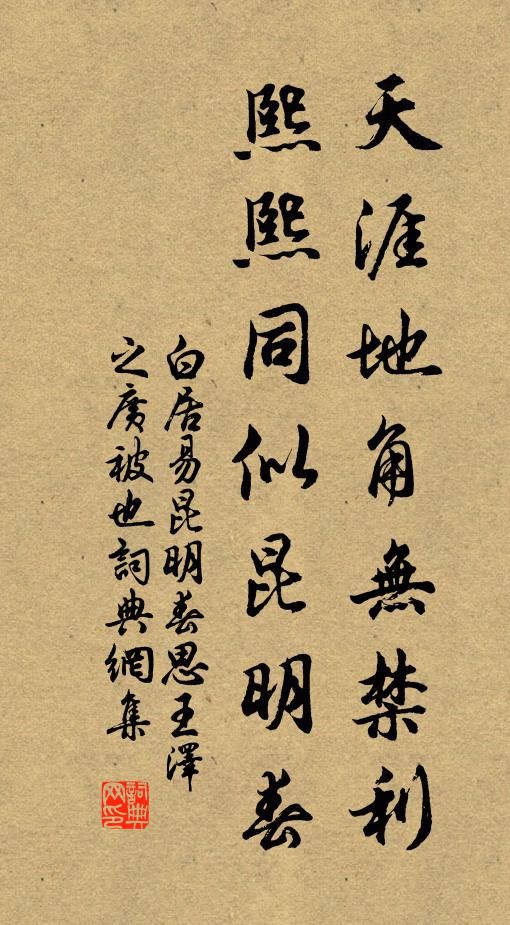 天涯地角無禁利
熙熙同似昆明春
白居易昆明春思王澤
之廣被也詞典網集
詞典网印